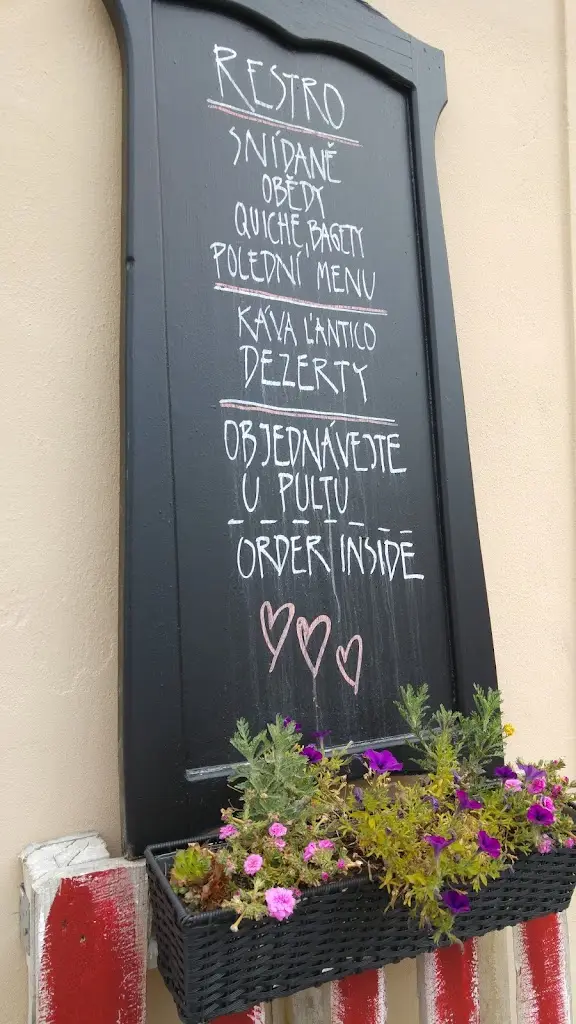 RESTRO
SNÍDANĚ
OBĚDY
QUICHE, BAGETY
POLEDNÍ MENU
KÁVA L'ANTICO
DEZERTY
OBJEDNÁVEJTE
U PULTU
ORDER INSIDE